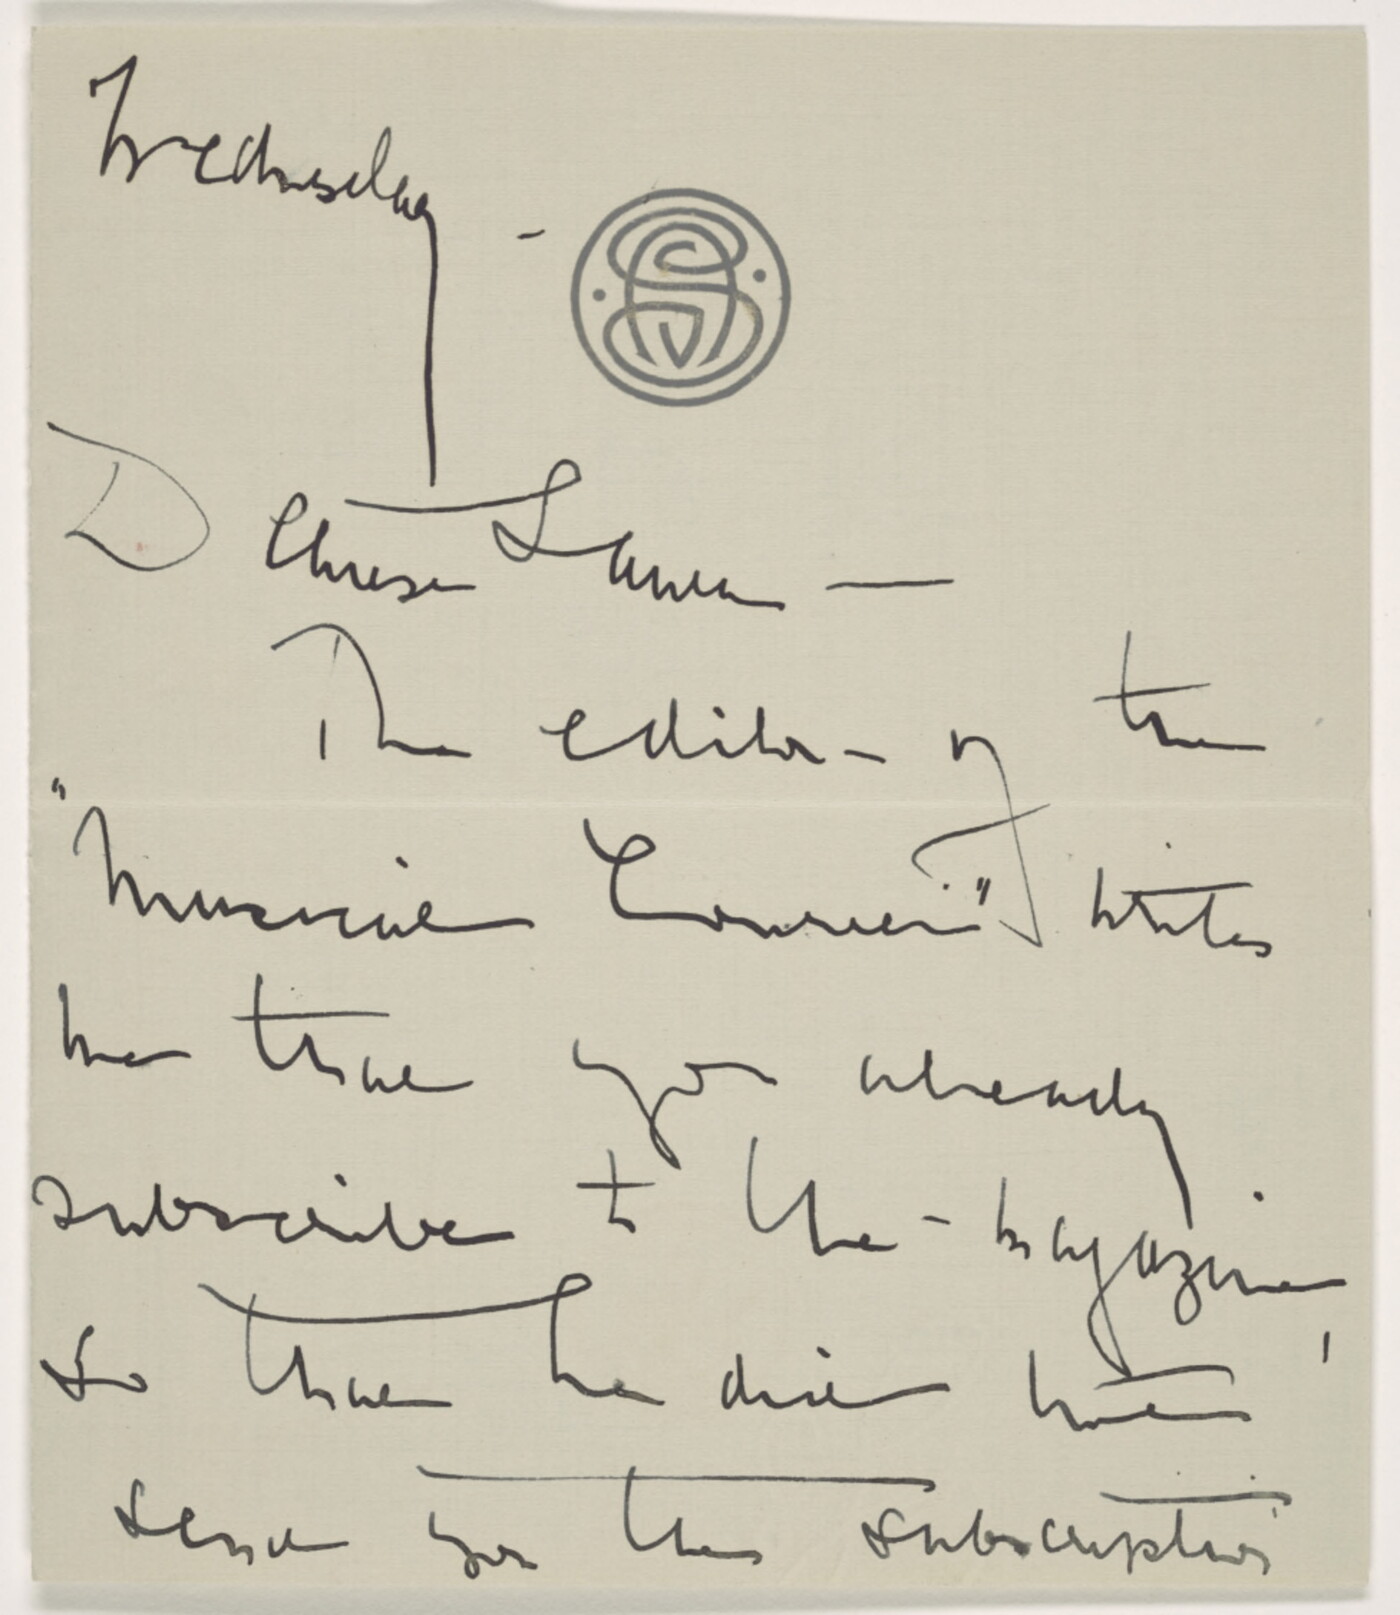 Wednesday -
Dearest Laura —
The editor - of the
"Musical Courier" writes
me that you already
subscribe to the - magazine
so that he did not
send you the subscription